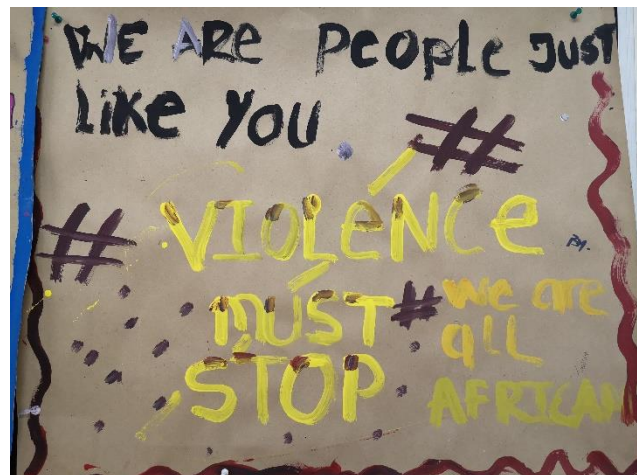 WE ARE PEOPLE JUST
LIKE YOU #
# VIOLENCE
MUST # We are
all
STOP AFRICAN